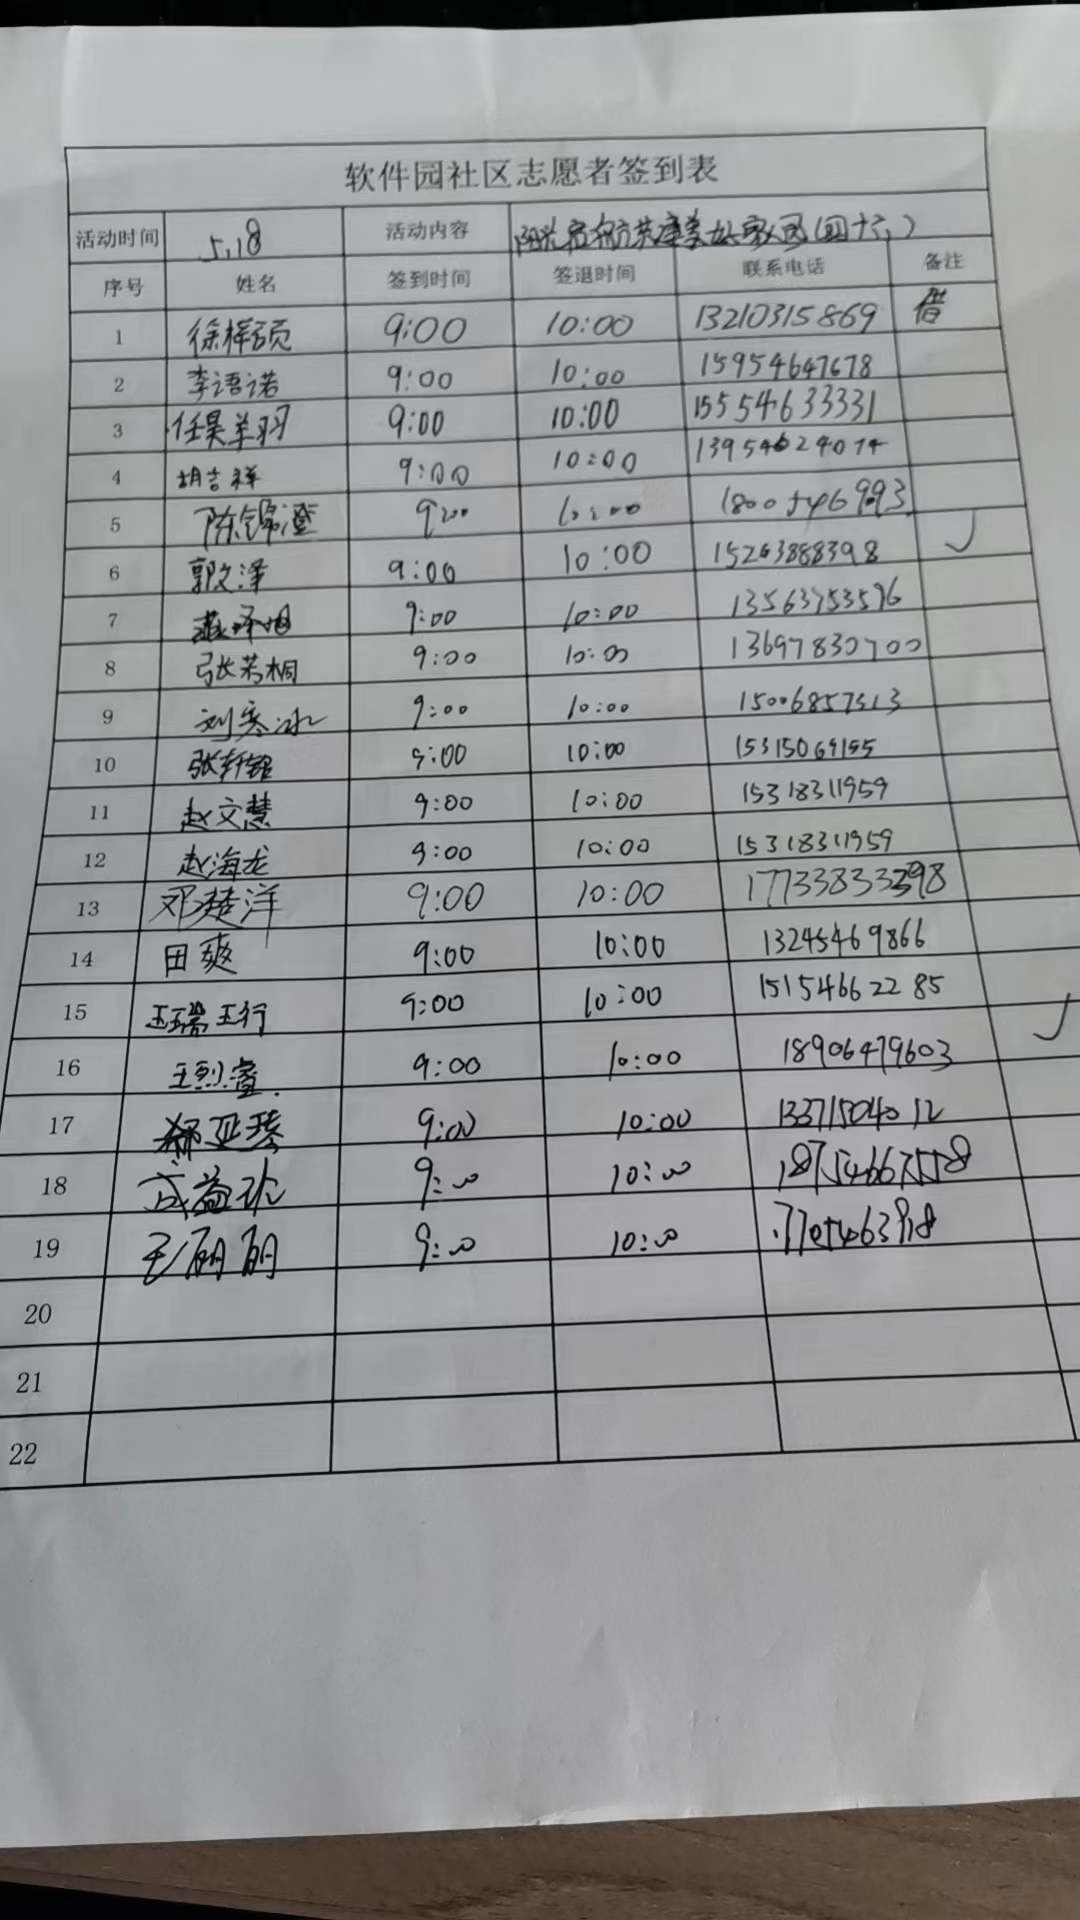 软件园社区志愿者签到表
活动时间 5.18 活动内容 (四十六)
序号 姓名 签到时间 签退时间 联系电话 备注
1 徐梓硕 9:00 10:00 13210315869 借
2 李语诺 9:00 10:00 15954647678
3 任昊羊羽 9:00 10:00 15554633331
4 胡吉祥 9:00 10:00 13954624074
5 陈锦澄 9:00 10:00 18005469993
6 郭文泽 9:00 10:00 15263888398 ✓
7 9:00 10:00 13563753596
8 张若桐 9:00 10:00 13697830700
9 刘寒冰 9:00 10:00 15006857513
10 张轩铭 9:00 10:00 15315069155
11 赵文慧 9:00 10:00 15318311959
12 赵海龙 9:00 10:00 15318311959
13 邓楚洋 9:00 10:00 17733833398
14 田爽 9:00 10:00 13245469866
15 9:00 10:00 15154662285
16 王烈睿 9:00 10:00 18906479603 ✓
17 9:00 10:00 13371504012
18 成益 9:00 10:00 18754667558
19 王丽丽 9:00 10:00
20
21
22